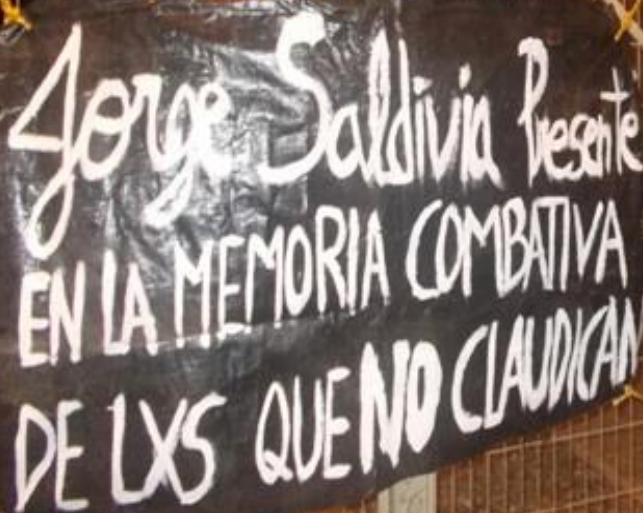 Jorge Saldivia Presente
EN LA MEMORIA COMBATIVA
DE LXS QUE NO CLAUDICAN